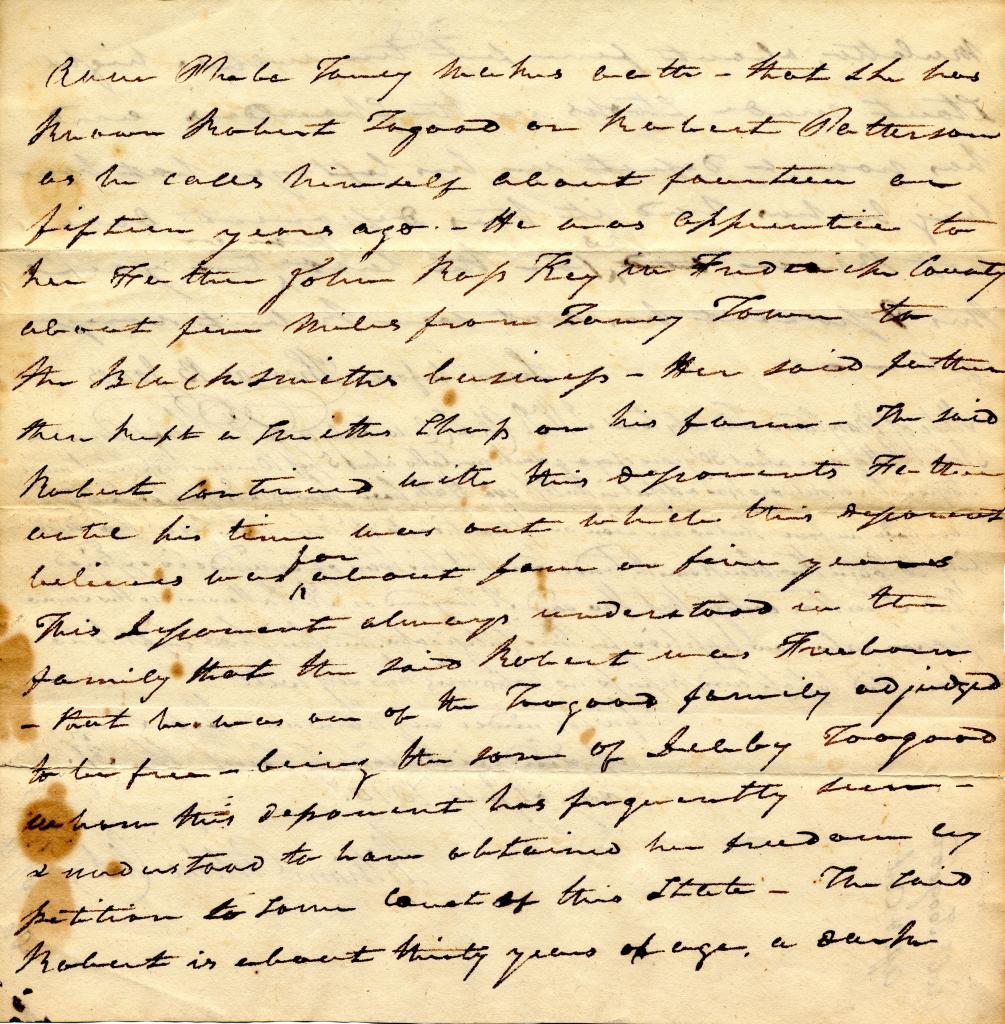 Anne Phebe Taney makes oath - that she has
known Robert Togood or Robert Patterson
as he calls himself about fourteen or
fifteen years ago. - He was apprentice to
her Father John Ross Key in Frederick County
about five miles from Taney Town to
the Blacksmiths business - Her said father
then kept a Smiths Shop on his farm - The said
Robert continued with this deponents Father
until his time was out which this deponent
believes was for about four or five years
This deponent always understood in the
family that the said Robert was Freeborn
- that he was one of the Toogood family adjudged
to be free - being the son of Toogood
whom this deponent has frequently seen -
& understood to have obtained her freedom by
petition to some Court of this State - The said
Robert is about thirty years of age, a dark